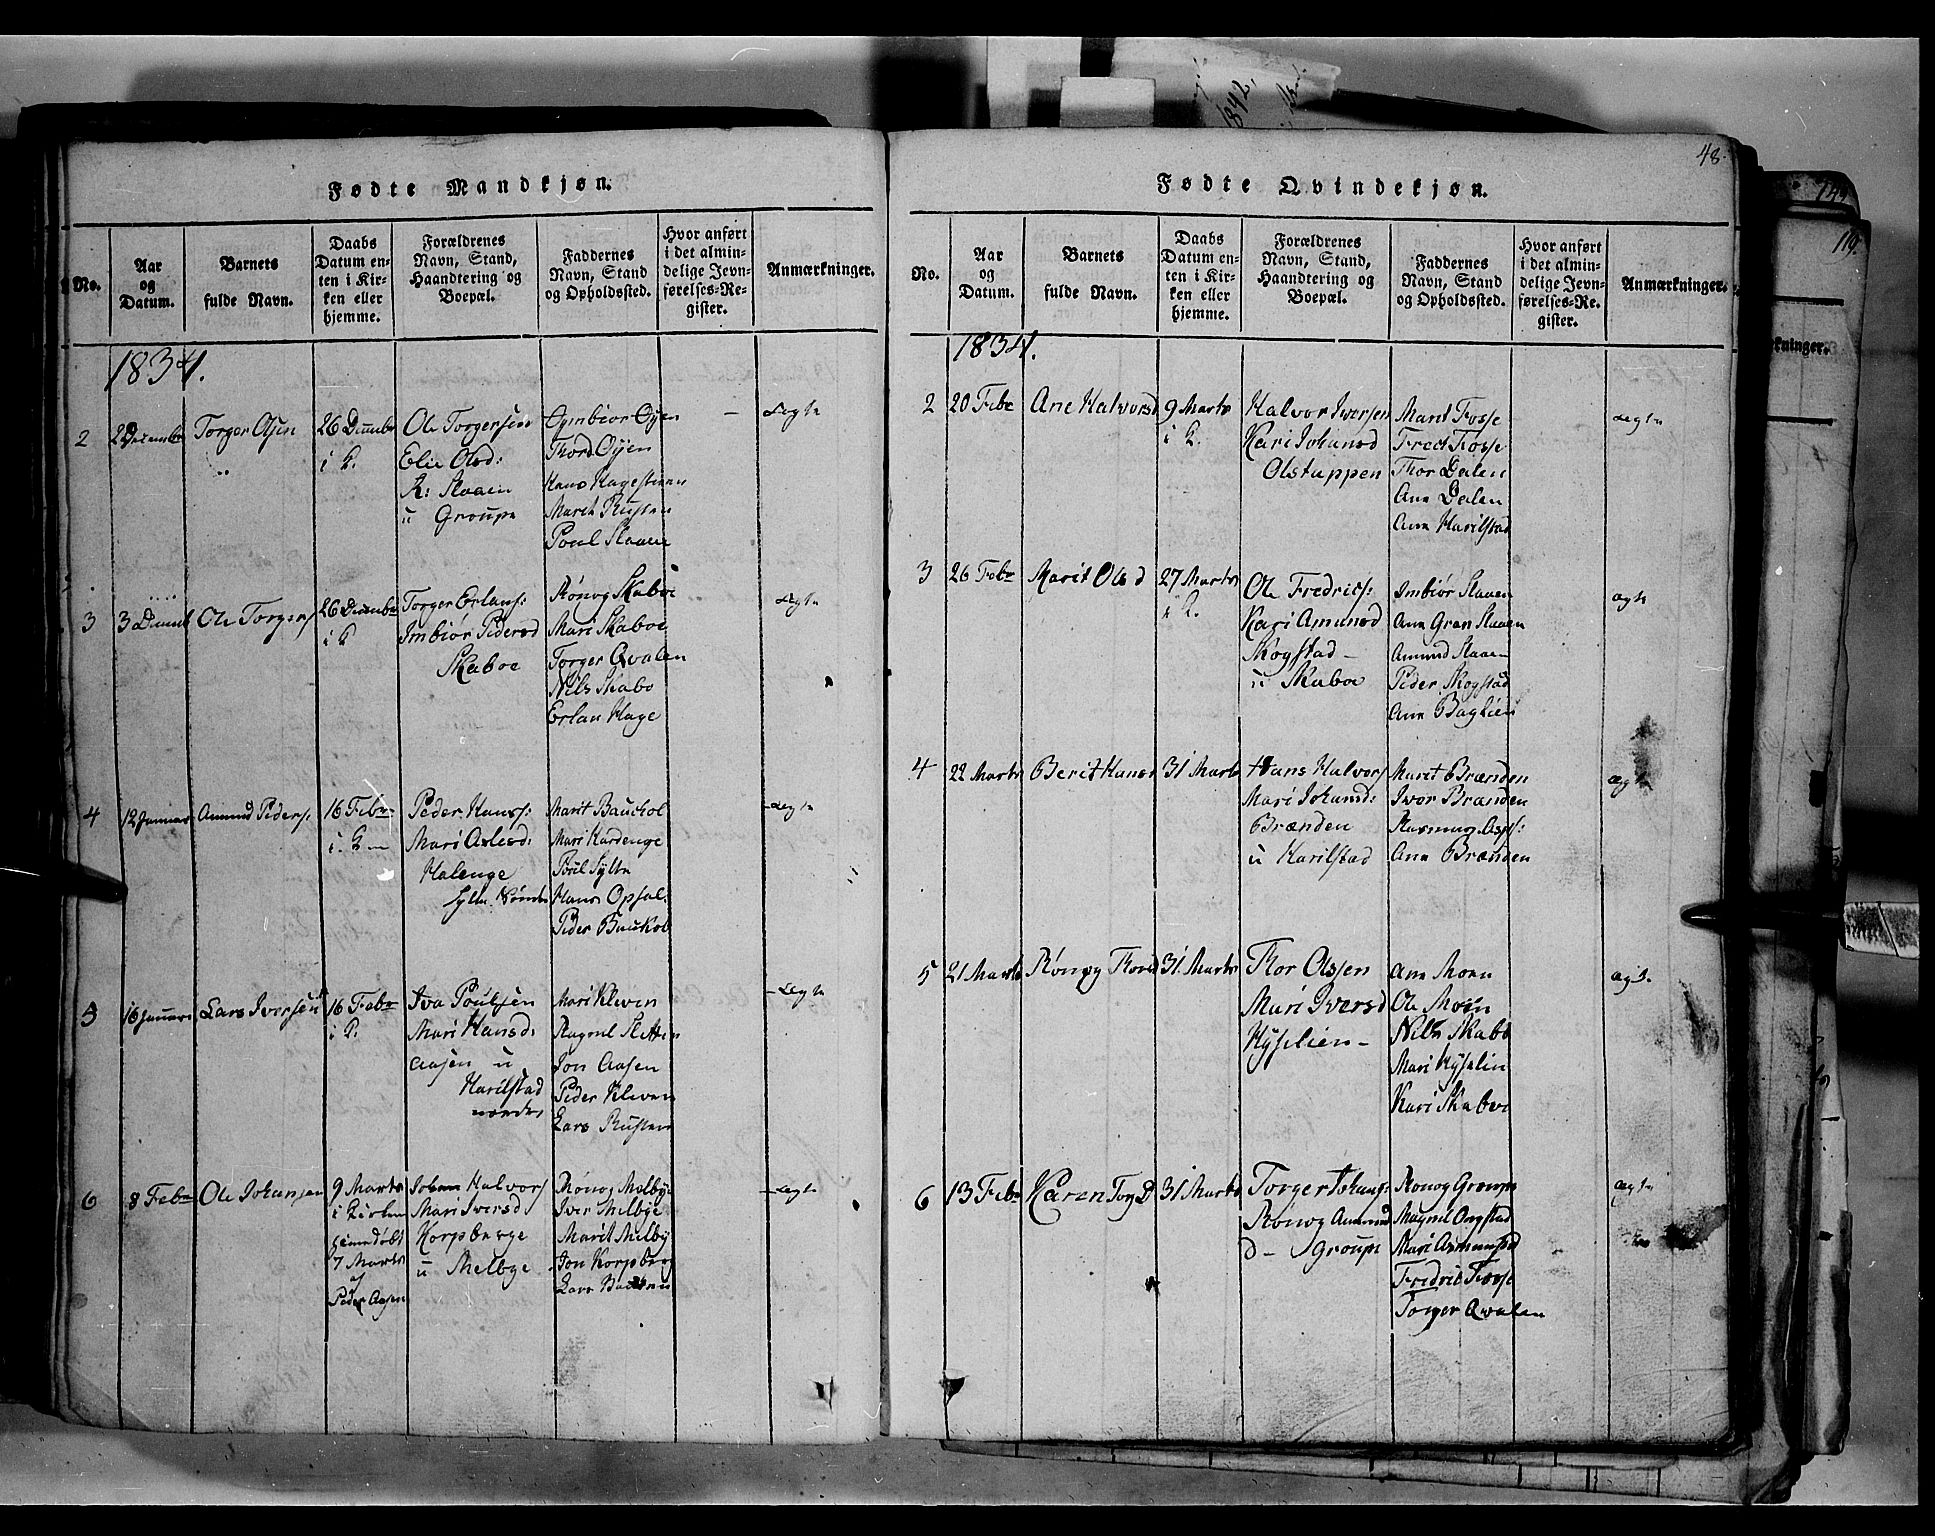 Fødte Mandkjøn.
No.
Aar
og
Datum.
Barnets
fulde Navn.
Daabs
Datum en-
ten i Kir-
ken eller
hjemme.
Forældrenes
Navn, Stand,
Haandtering og
Boepæl.
Faddernes
Navn, Stand
og Opholdssted.
Hvor anført
i det almin-
delige Jevn-
førelses-Re-
gister.
Anmærkninger.
1834.
2
2 December
Torger Olsen
26 Decembr
i K.
Ole Torgersen
Elie Olsd:
R: Slaaen
u Groupe
Øyen
Thord Øyen
Hans Hagestuen
Marit Rusten
Poul Slaaen
-
Ægte
3
3 Decemb
Ole Torgers
26 December
i K
Torger Erlans:
Imbiør Pedersd
Skaboe
Rønog Skaboe
Mari Skaboe
Torger Qvalen
Nils Skabo
Erlan Hage
Ægte
4
12 Januar
Amund Peders:
16 Febr
i K
Peder Hanss:
Mari
Halenge
Marit Baukol
Mari Hardenge
Poul Sylte
Hans Opsal.
Peder Baukol
Ægte
5
16 Januar
Lars Iversen
16 Febr
i K.
Iva Poulsen
Mari Hansd:
Aasen u
Harilstad
nordre
Mari Kleven
Ragnil Sletten
Jon Aasen
Peder Kleven
Lars Rusten
Ægte
6
8 Febr
Ole Johansen
9 Marts
i Kirken
hiemedøbt
7 Marts
af
Peder Aasen
Johan Halvors
Mari Iversd
Korpberge
u Melbye
Rønog Melbye
Iver Melbye
Marit Melby
Jon Korpberg
Lars
Ægte
48.
Fødte Qvindekjøn.
No.
Aar
og
Datum.
Barnets
fulde Navn.
Daabs
Datum en-
ten i Kir-
ken eller
hjemme.
Forældrenes
Navn, Stand,
Haandtering og
Boepæl.
Faddernes
Navn, Stand
og Opholdsted.
Hvor anført
i det almin-
delige Jevn-
førelses-Re-
gister.
Anmærkninger.
1834.
2
20 Febr
Ane Halvorsd
9 Marts
i K.
Halvor Iversen
Kari Johansd
Olstappen
Marit Fosse
Fredr Fosse
Thor Dalen
Ane Dalen
Ane Harilstad
Ægte
3
26 Febr
Marit Olsd
27 Marts
i K.
Ole Fredrics:
Kari Amunsd
Skogstad -
u Skaboe
Imbiør Slaaen
Ane Gran Slaaen
Amund Slaaen
Peder Skogstad
Ane Baglien
ægte
4
22 Marts
Berit Hansd
31 Marts
Hans Halvors
Mari Johansd:
Brænden
u Harilstad
Marit Brænden
Iver Brænden
Rasmus
Ane Brænden
ægte
5
21 Marts
Rønog Thorsd
31. Marts
Thor Olssen
Mari Iversd
Kyselien -
Ane Moen
Ole Moen
Nils Skabo
Mari Kyselin
Kari Skaboe
ægte
6
13 Febr
Karen Torg D
31 Marts
Torger Johans:
Rønog Amund
d - Groupe
Ronog Groupe
Magnil Ongstad
Mari
Fredric Fosse
Torger Qvalen
ægte
1842,
119.
kninger.